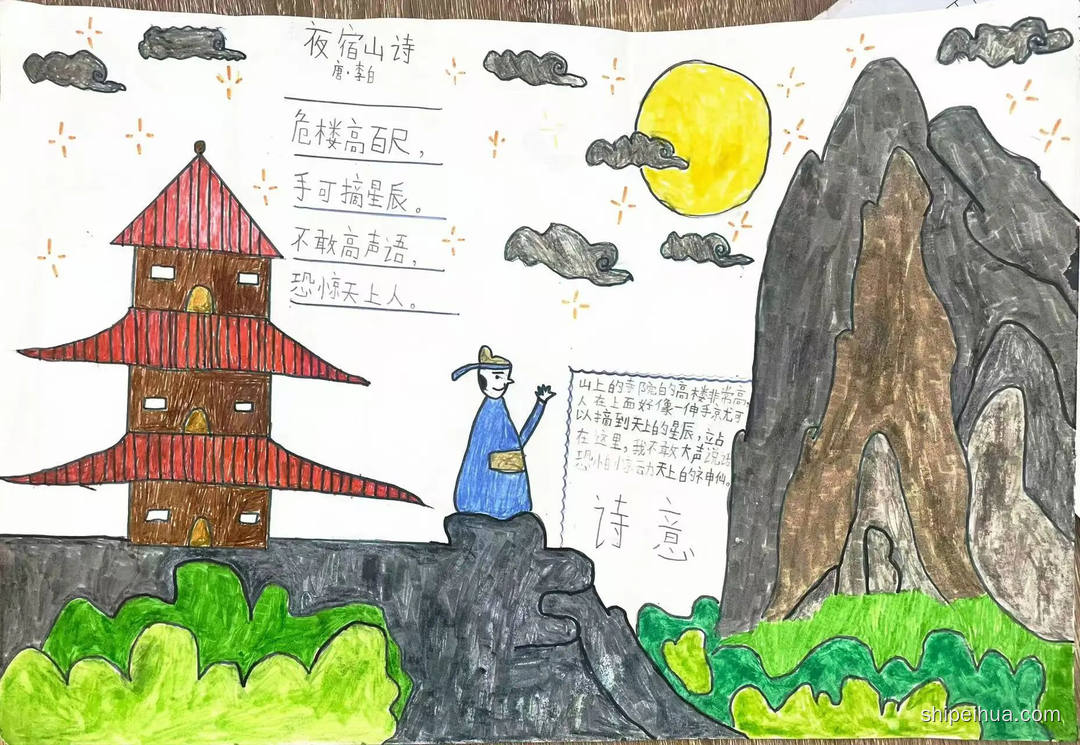 夜宿山诗
唐·李白
危楼高百尺，
手可摘星辰。
不敢高声语，
恐惊天上人。
山上的寺院的高楼非常高，
人在上面好像一伸手就可
以摘到天上的星辰，站
在这里，我不敢大声说话
恐怕惊动天上的神仙。
诗意
shipeihua.com